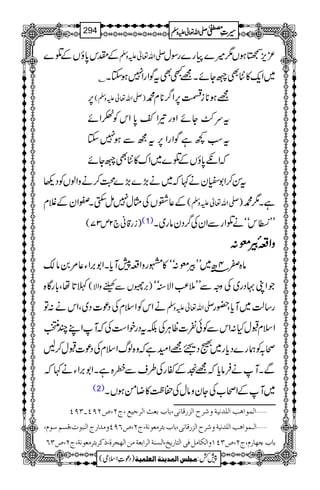 سیرتِ مصطفیٰ صلی اللہ تعالیٰ علیہ وسلم 294
عزیز سمجھتا ہوں مگر میرے پیارے رسول صلی اللہ تعالیٰ علیہ وسلم کے مقدس پاؤں کے تلوے
میں ایک کانٹا بھی چبھ جائے۔ مجھے کبھی بھی یہ گوارا نہیں ہو سکتا۔ ؂
مجھے ہو ناز قسمت پر اگر نام محمد (صلی اللہ تعالیٰ علیہ وسلم) پر
یہ سر کٹ جائے اور تیرا کف پا اس کو ٹھکرائے
یہ سب کچھ ہے گوارا پر یہ مجھ سے ہو نہیں سکتا
کہ ان کے پاؤں کے تلوے میں اک کانٹا بھی چبھ جائے
یہ سن کر ابو سفیان نے کہا کہ میں نے بڑے بڑے محبت کرنے والوں کو دیکھا
ہے۔ مگر محمد (صلی اللہ تعالیٰ علیہ وسلم) کے عاشقوں کی مثال نہیں مل سکتی۔ صفوان کے غلام
’’نسطاس‘‘ نے تلوار سے ان کی گردن ماری۔(1) (زرقانی ج۲ ص۷۳)
واقعۂ بیر معونہ
ماہ صفر ۴ھ میں ’’بیر معونہ‘‘ کا مشہور واقعہ پیش آیا۔ ابو براء عامر بن مالک
جو اپنی بہادری کی وجہ سے ’’ملاعب الاسنہ‘‘ (برچھیوں سے کھیلنے والا) کہلاتا تھا، بارگاہ
رسالت میں آیا، حضور صلی اللہ تعالیٰ علیہ وسلم نے اس کو اسلام کی دعوت دی، اس نے نہ تو
اسلام قبول کیا نہ اس سے کوئی نفرت ظاہر کی بلکہ یہ درخواست کی کہ آپ اپنے چند منتخب
صحابہ کو ہمارے دیار میں بھیج دیجئے مجھے امید ہے کہ وہ لوگ اسلام کی دعوت قبول کر لیں
گے۔ آپ نے فرمایا کہ مجھے نجد کے کفار کی طرف سے خطرہ ہے۔ ابو براء نے کہا کہ
میں آپ کے اصحاب کی جان و مال کی حفاظت کا ضامن ہوں۔(2)
......المواھب اللدنیة و شرح الزرقانی، باب بعث الرجیع، ج۲، ص۴۹۲،۴۹۳
......المواھب اللدنیة و شرح الزرقانی، باب بئرمعونة، ج۲، ص۴۹۶ ومدارج النبوت، قسم سوم،
باب چہارم، ج۲، ص۱۴۳ والکامل فی التاریخ، السنة الرابعة من الھجرة، ذکربئرمعونة، ج۲، ص۶۳
پیش کش: مجلس المدینة العلمیة (دعوتِ اسلامی)